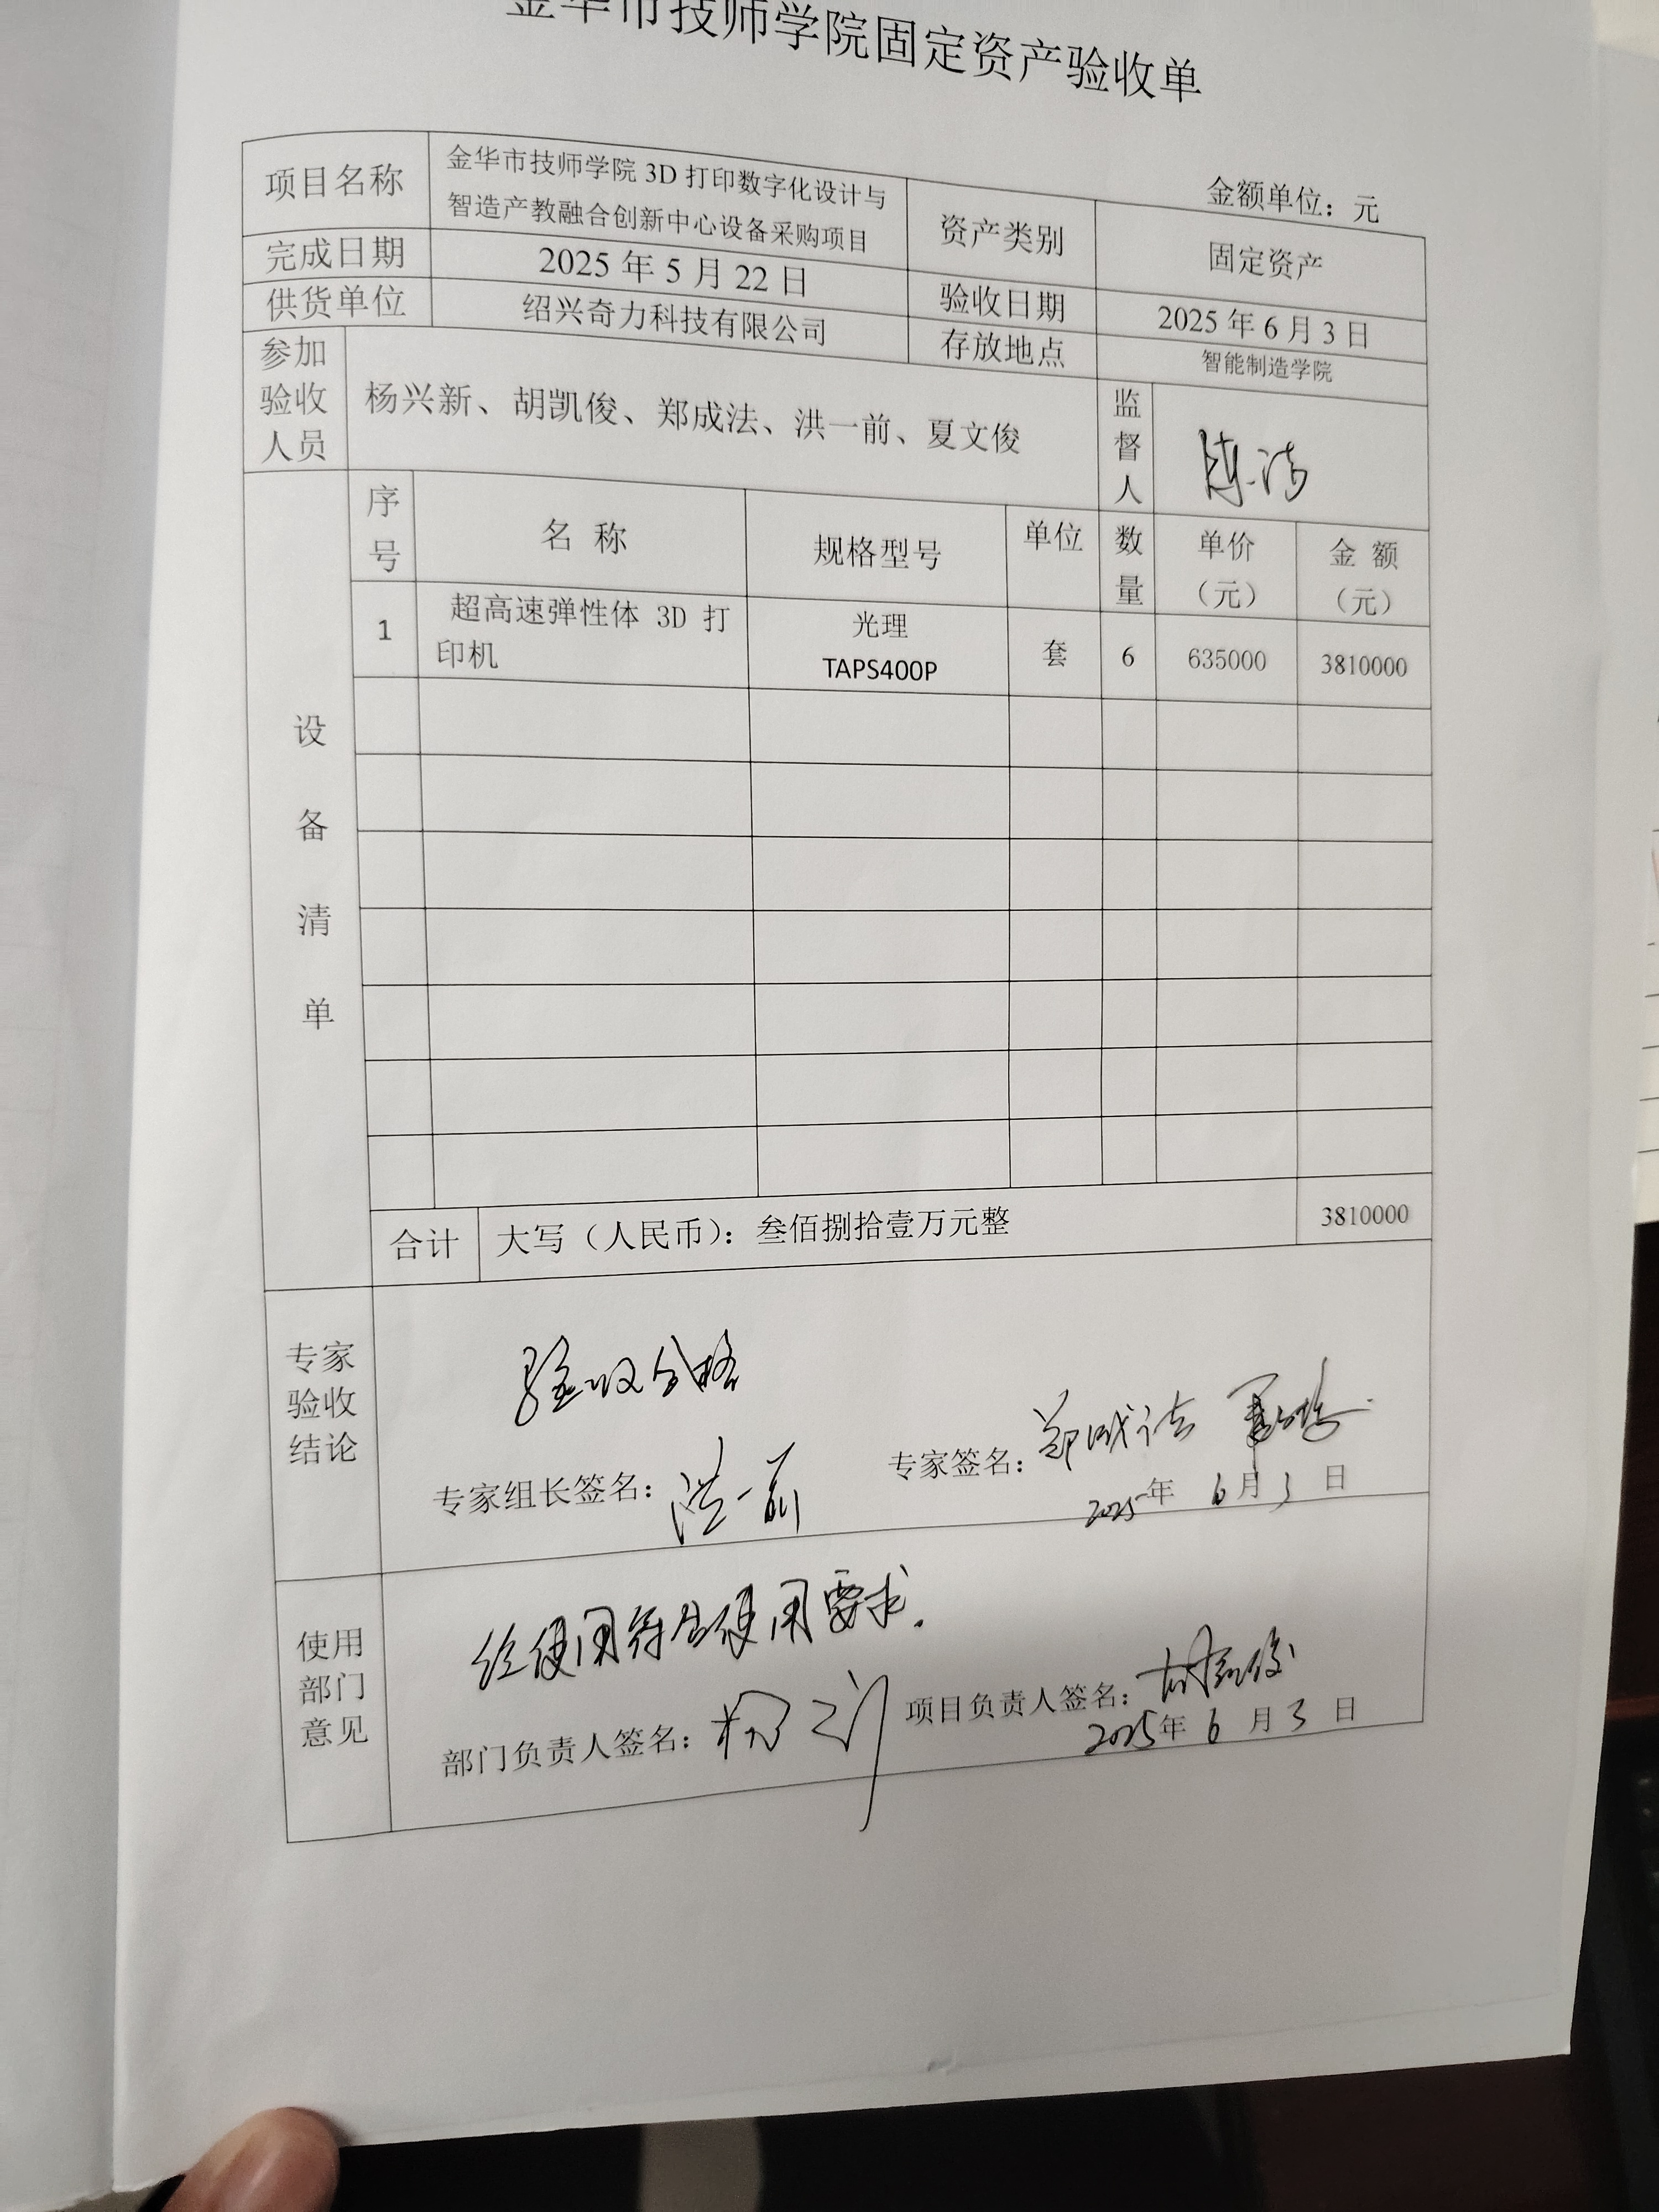 金华市技师学院固定资产验收单
金额单位：元
项目名称 金华市技师学院 3D 打印数字化设计与 资产类别 固定资产
智造产教融合创新中心设备采购项目
完成日期 2025 年 5 月 22 日 验收日期 2025 年 6 月 3 日
供货单位 绍兴奇力科技有限公司 存放地点 智能制造学院
参加
验收
人员
杨兴新、胡凯俊、郑成法、洪一前、夏文俊
监
督
人
设
备
清
单
序
号
名 称 规格型号 单位
数
量
单价
（元）
金 额
（元）
1 超高速弹性体 3D 打
印机
光理
TAPS400P
套 6 635000 3810000
合计 大写（人民币）：叁佰捌拾壹万元整 3810000
专家
验收
结论
验收合格
专家组长签名：洪一前 专家签名：郑成法
2025年 6月3日
使用
部门
意见
经使用符合使用要求.
部门负责人签名： 项目负责人签名：胡凯俊
2025年 6 月 3 日